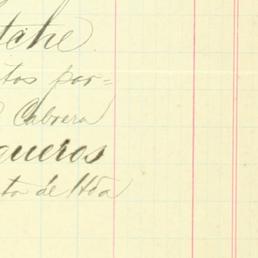 tche
tos por=
Cabrera
queros
to de Hda